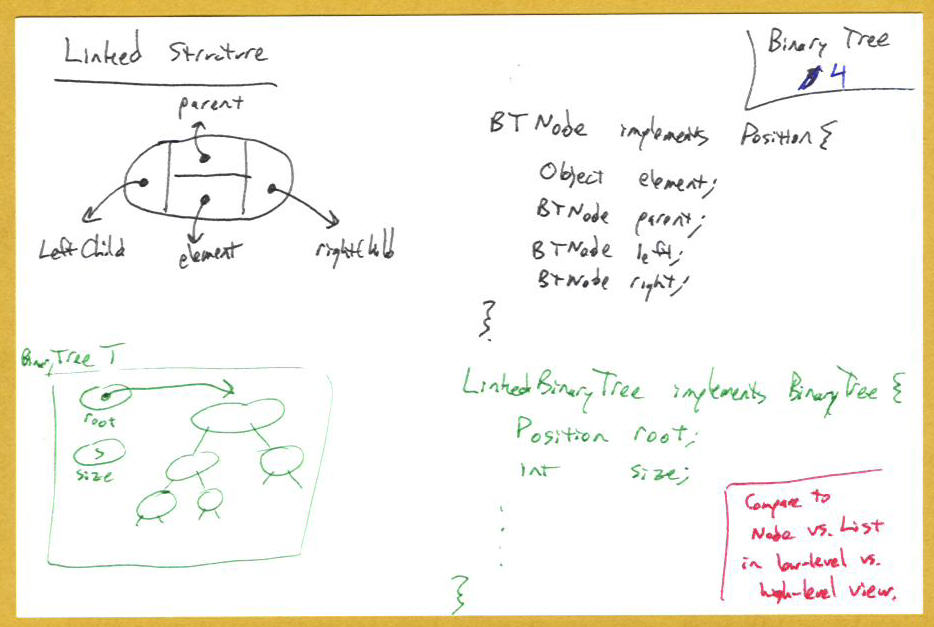 Linked Structure
Binary Tree
4
parent
LeftChild
element
rightChild
BTNode implements Position {
Object element;
BTNode parent;
BTNode left;
BTNode right;
}
BinaryTree T
root
5
size
LinkedBinaryTree implements BinaryTree {
Position root;
int size;
}
Compare to
Node vs. List
in low-level vs.
high-level view.